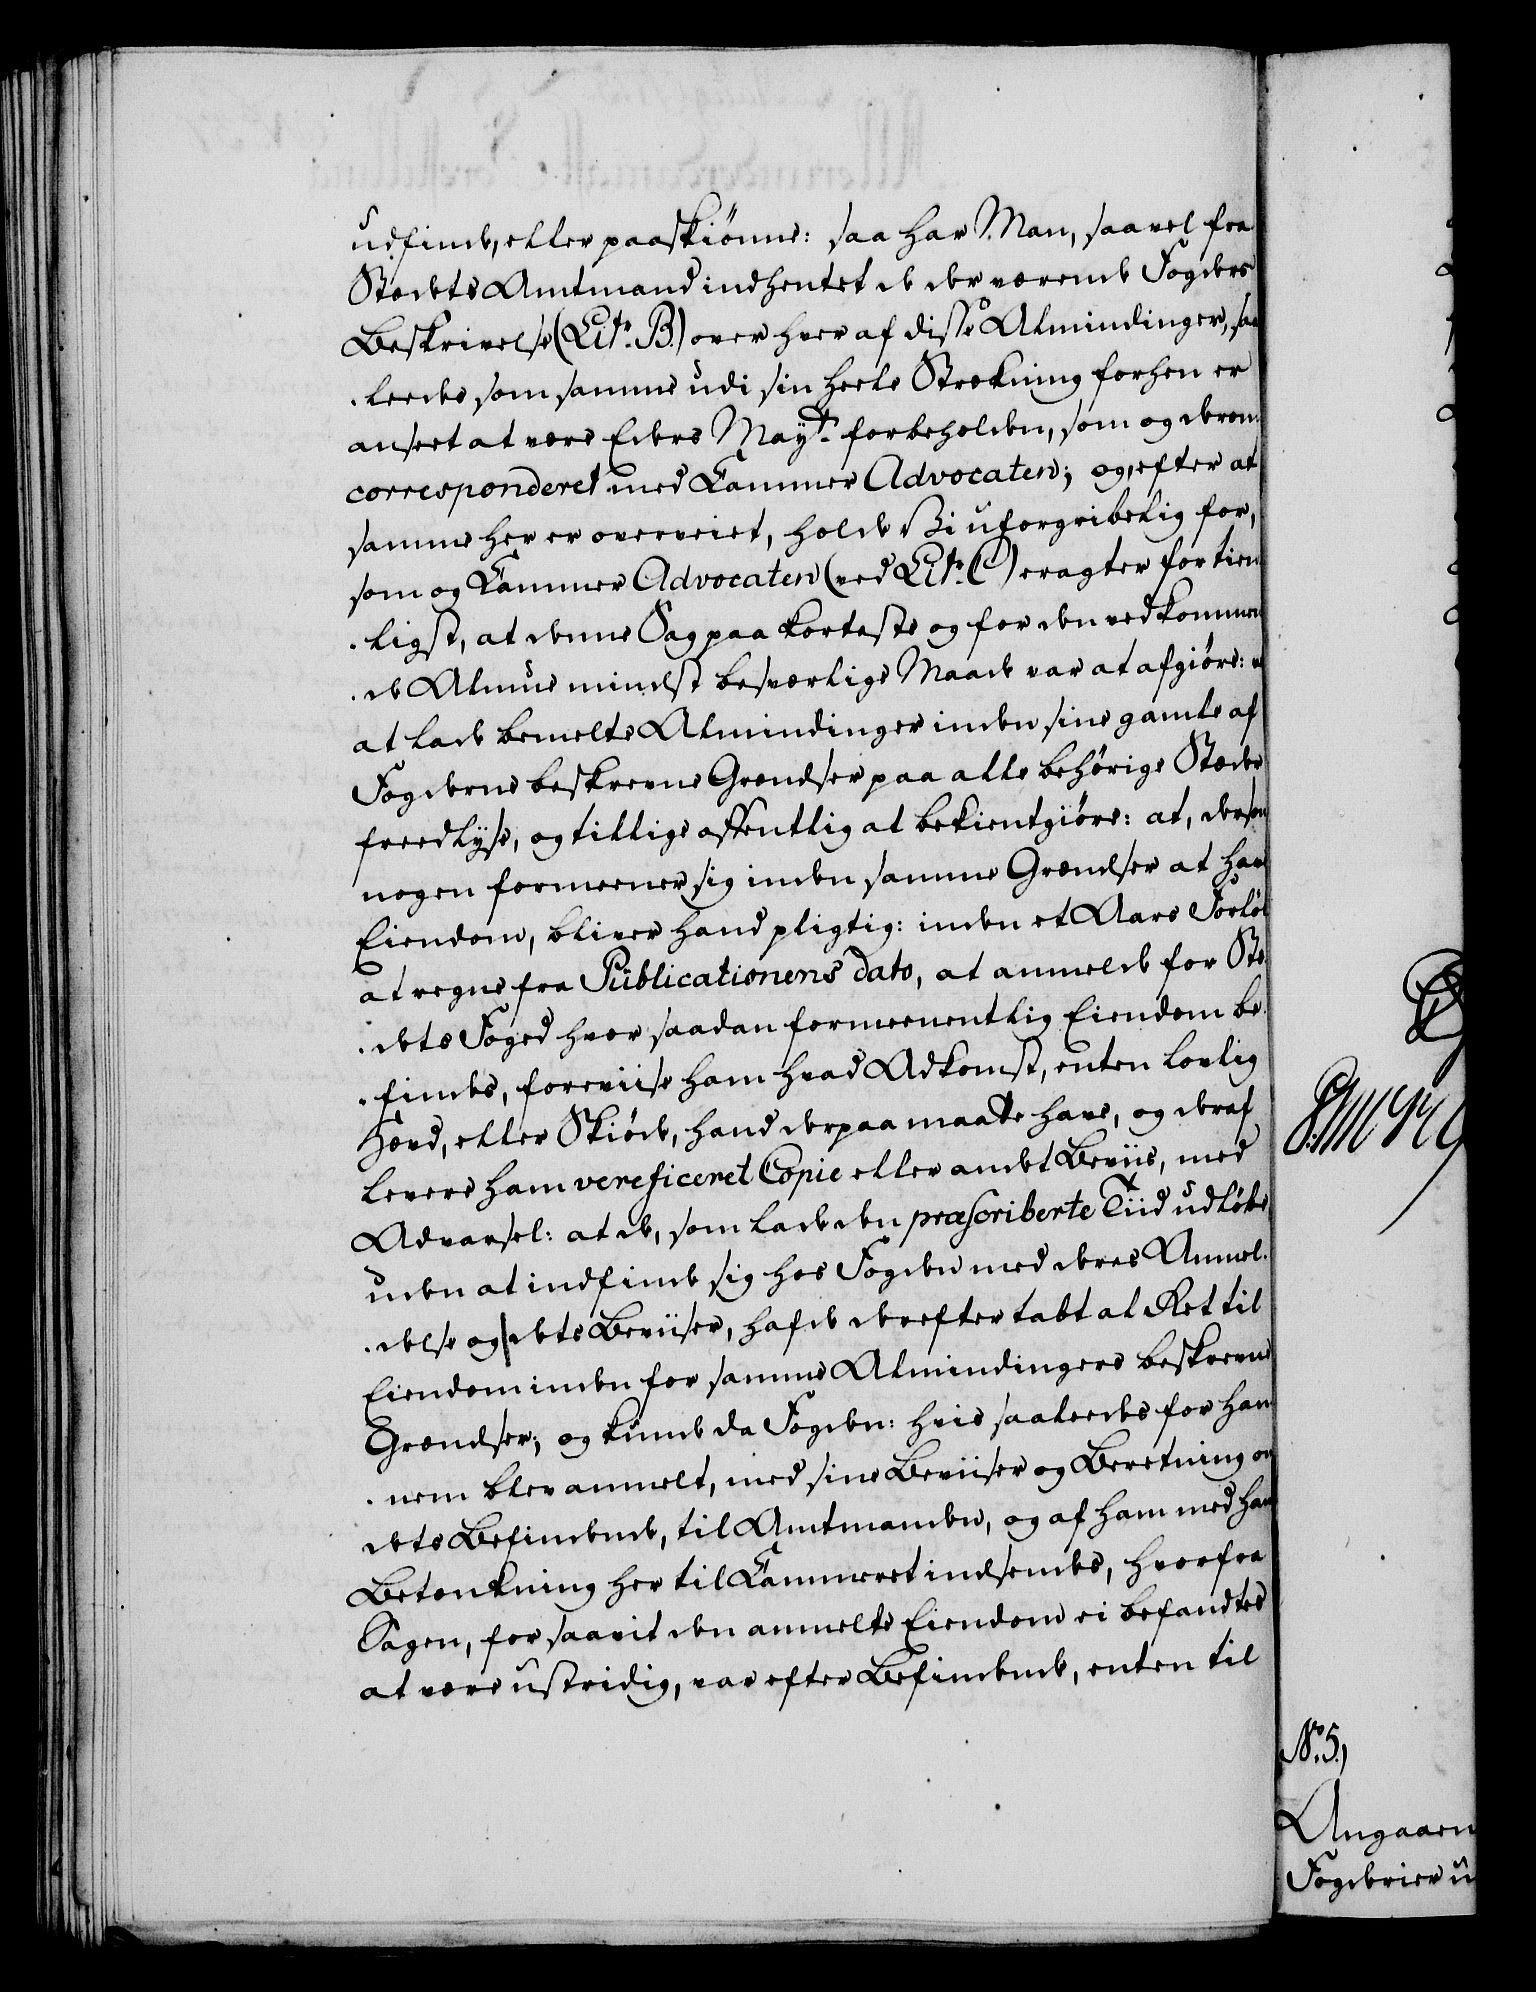 udfinde, eller paaskiønne: saa har Man, saavel fra
Stædets Amtmand indhentet de der værende Fogders
Beskrivelse (Litr. B.) over hver af disse Almindinger, saa
leedes som samme udi sin heele Strækning forhen er
anseet at være Eders Mayt. forbeholden, som og derom
corresponderet med Cammer Advocaten; og, efter at
samme her er overveiet, holde Vi uforgribelig for,
som og Cammer Advocaten (ved Litr. C) eragter for tien
ligst, at denne Sag paa korteste og for den vedkommen
de Almue mindst besværlige Maade var at afgiøre:
at lade bemelte Almindinger inden sine gamle af
Fogderne beskrevne Grændser paa alle behørige Stæder
freedlyse, og tillige offentlig at bekientgiøre: at, dersom
nogen formeener sig inden samme Grændser at have
Eiendom, bliver hand pligtig: inden et Aars Forløb
at regne fra Publicationens dato, at anmelde for Stæ
dets Foged hvor saadan formeenentlig Eiendom be
findes, foreviise ham hvad Adkomst, enten lovlig
Hævd, eller Skiøde, hand derpaa maatte have, og deraf
levere ham vereficeret Copie eller andet Beviis, med
Advarsel: at de, som lade den præscriberte Tiid udløbe
uden at indfinde sig hos Fogden med deres Anmel
delse og dets Beviiser, hafde derefter tabt al Ret til
Eiendom inden for samme Almindingers beskrevne
Grændser; og kunde da Fogden: hvis saaledes for ham
nem blev anmelt, med sine Beviiser og Beretning om
dets Befindende, til Amtmanden, og af ham med hans
Betænkning her til Cammeret indsendes, hvorfra
Sagen, for saavit den anmelte Eiendom ei befandtes
at være ustridig, var efter Befindende, enten til
No. 5,
Angaaen
Fogderier u